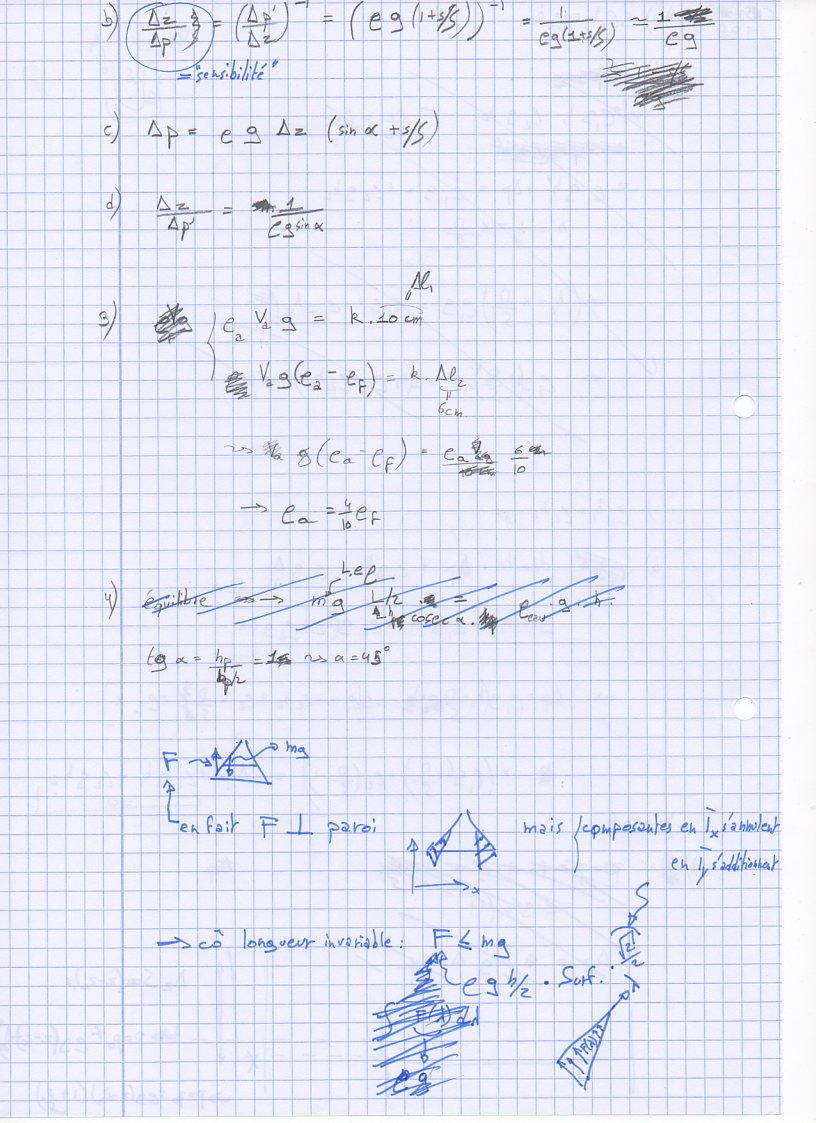 b) Δz/Δp' = (Δp'/Δz)⁻¹ = (ρg(1+s/S))⁻¹ = 1/(ρg(1+s/S)) ≈ 1/ρg
= "sensibilité"
c) Δp = ρ g Δz (sin α + s/S)
d) Δz/Δp' = 1/(ρg sin α)
Δl₁
3) ρₐ Vₐ g = k . 10 cm
Vₐ g(ρₐ - ρ_F) = k . Δl₂
6cm
g(ρₐ - ρ_F) = ρₐ g 6/10
→ ρₐ = 4/10 ρ_F
L.e.ρ
4) équilibre → m g L/2 cosec α . = ρ_eau . g . h.
tg α = hp/(hp/2) = 1 ⇝ α = 45°
F → mg
en fait F ⊥ paroi
mais composantes en 1̄ₓ s'annulent
x
en 1̄y s'additionnent
S
→ cô longueur invariable : F ≤ mg
√2/2
ρ g h/2 . Surf.
λ
F(λ) dλ
F(λ)
ρ g